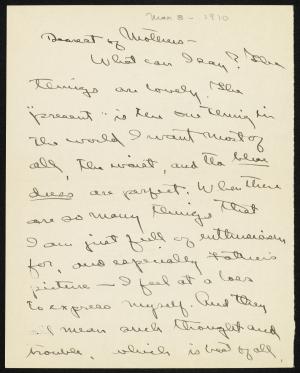 Mar 8 - 1910
Dearest of Mothers -
What can I say? The
things are lovely. The
"present" is the one thing in
the world I want most of
all, the waist, and the blue
dress are perfect. When there
are so many things that
I am just full of enthusiasm
for, and especially Father's
picture - I feel at a loss
to express myself. And they
all mean such thought and
trouble, which is best of all,